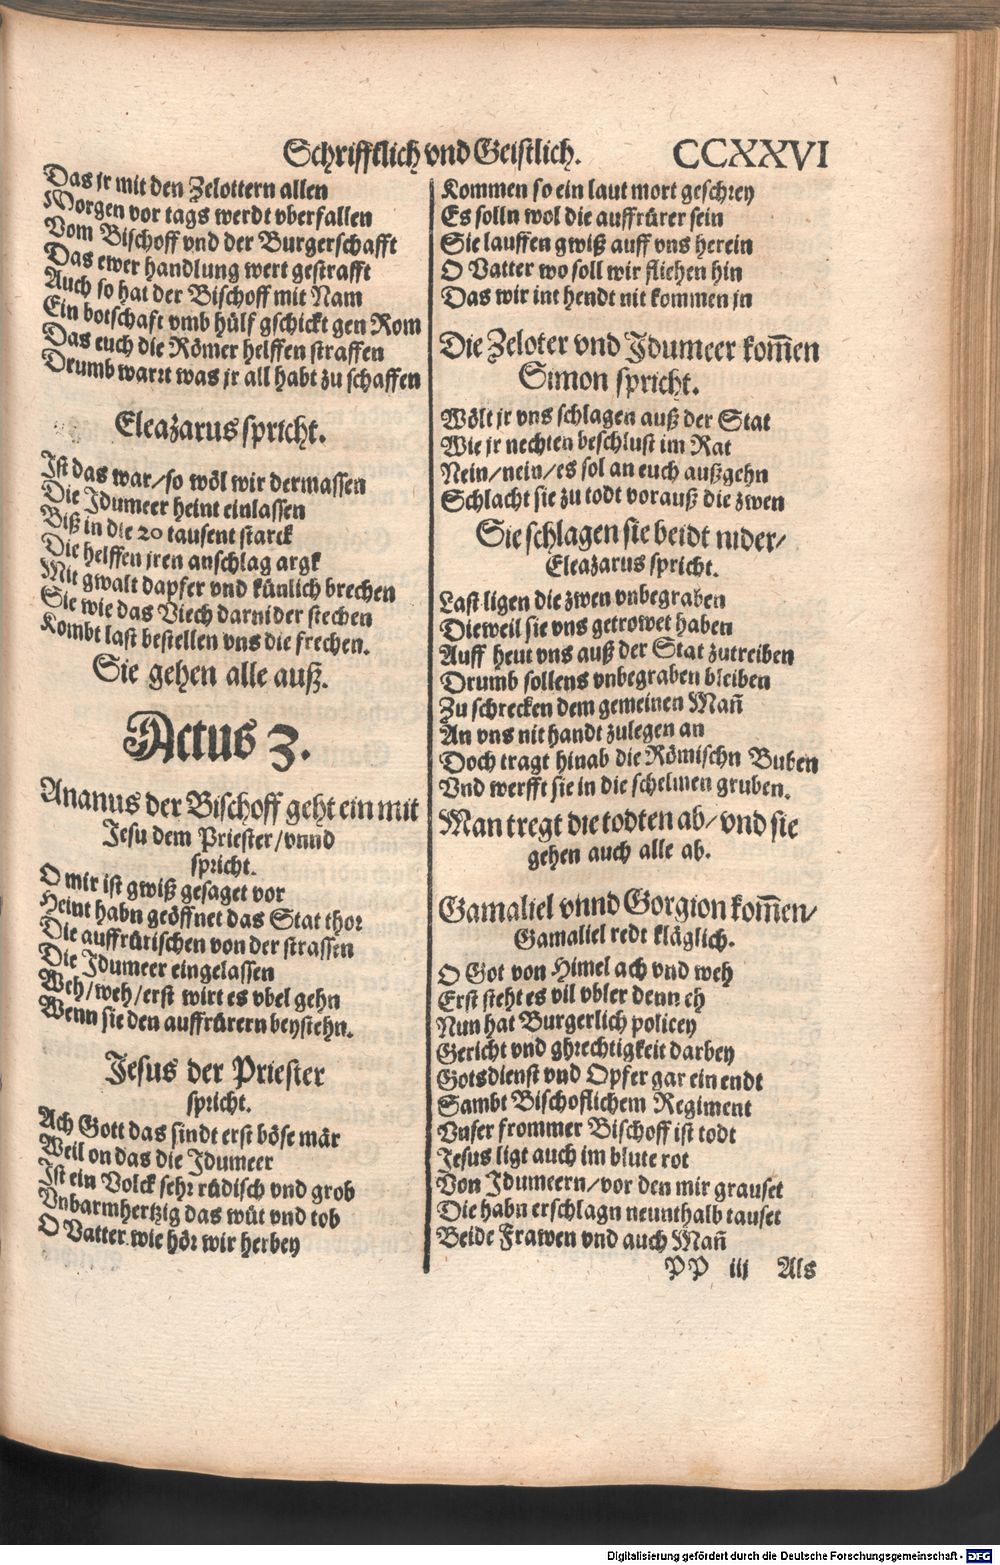 Schrifftlich vnd Geistlich. CCXXVI
Das jr mit den Zelottern allen
Morgen vor tags werdt vberfallen
Vom Bischoff vnd der Burgerschafft
Das ewer handlung wert gestrafft
Auch so hat der Bischoff mit Nam
Ein botschaft vmb hülf gschickt gen Rom
Das euch die Römer helffen straffen
Drumb warzt was jr all habt zu schaffen
Eleazarus spricht.
Ist das war/so wöl wir dermassen
Die Idumeer heint einlassen
Biß in die 20 tausent starck
Die helffen jren anschlag argk
Mit gwalt dapfer vnd künlich brechen
Sie wie das Viech darnider stechen
Kombt last bestellen vns die frechen.
Sie gehen alle auß.
Actus 3.
Ananus der Bischoff geht ein mit
Jesu dem Priester/vnnd
spricht.
O mir ist gwiß gesaget vor
Heint habn geöffnet das Stat thor
Die auffrürischen von der strassen
Die Idumeer eingelassen
Weh/weh/erst wirt es vbel gehn
Wenn sie den auffrürern beystehn.
Jesus der Priester
spricht.
Ach Gott das sindt erst böse mär
Weil on das die Idumeer
Ist ein Volck sehr rüdisch vnd grob
Vnbarmhertzig das wüt vnd tob
O Vatter wie hör wir herbey
Kommen so ein laut mort geschrey
Es solln wol die auffrürer sein
Sie lauffen gwiß auff vns herein
O Vatter wo soll wir fliehen hin
Das wir int hendt nit kommen jn
Die Zeloter vnd Idumeer kom̄en
Simon spricht.
Wölt jr vns schlagen auß der Stat
Wie jr nechten beschlust im Rat
Nein/nein/es sol an euch außgehn
Schlacht sie zu todt vorauß die zwen
Sie schlagen sie beidt nider/
Eleazarus spricht.
Last ligen die zwen vnbegraben
Dieweil sie vns getrowet haben
Auff heut vns auß der Stat zutreiben
Drumb sollens vnbegraben bleiben
Zu schrecken dem gemeinen Mañ
An vns nit handt zulegen an
Doch tragt hinab die Römischn Buben
Vnd werfft sie in die schelmen gruben.
Man tregt die todten ab/vnd sie
gehen auch alle ab.
Gamaliel vnnd Gorgion kom̄en/
Gamaliel redt kläglich.
O Got von Himel ach vnd weh
Erst steht es vil vbler denn eh
Nun hat Burgerlich policey
Gericht vnd ghrechtigkeit darbey
Gotsdienst vnd Opfer gar ein endt
Sambt Bischoflichem Regiment
Vnser frommer Bischoff ist todt
Jesus ligt auch im blute rot
Von Idumeern/vor den mir grauset
Die habn erschlagn neunthalb tauset
Beide Frawen vnd auch Mañ
PP iij Als
Digitalisierung gefördert durch die Deutsche Forschungsgemeinschaft - DFG